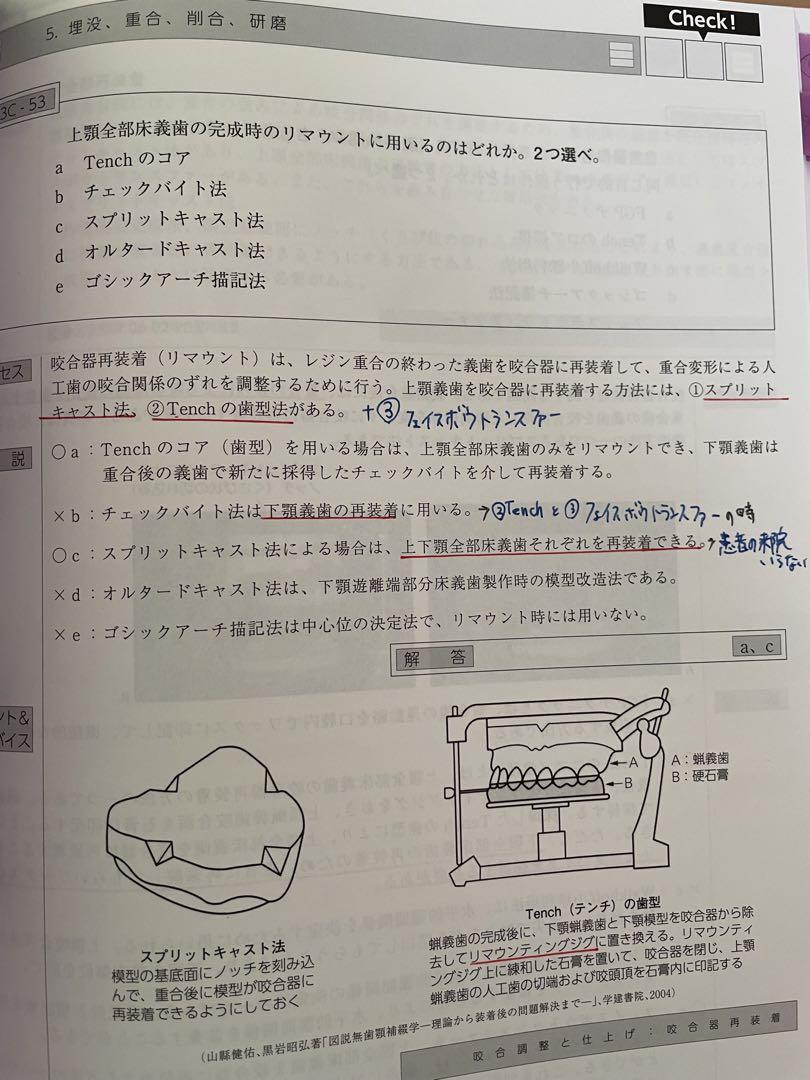 5. 埋没、重合、削合、研磨
Check!
3C-53
上顎全部床義歯の完成時のリマウントに用いるのはどれか。2つ選べ。
a Tenchのコア
b チェックバイト法
c スプリットキャスト法
d オルタードキャスト法
e ゴシックアーチ描記法
セス
咬合器再装着（リマウント）は、レジン重合の終わった義歯を咬合器に再装着して、重合変形による人
工歯の咬合関係のずれを調整するために行う。上顎義歯を咬合器に再装着する方法には、①スプリット
キャスト法、②Tenchの歯型法がある。 +③ フェイスボウトランスファー
説
○a：Tenchのコア（歯型）を用いる場合は、上顎全部床義歯のみをリマウントでき、下顎義歯は
重合後の義歯で新たに採得したチェックバイトを介して再装着する。
×b：チェックバイト法は下顎義歯の再装着に用いる。→②Tenchと③フェイスボウトランスファーの時
○c：スプリットキャスト法による場合は、上下顎全部床義歯それぞれを再装着できる。→患者の来院
いらない
×d：オルタードキャスト法は、下顎遊離端部分床義歯製作時の模型改造法である。
×e：ゴシックアーチ描記法は中心位の決定法で、リマウント時には用いない。
解 答
a、c
ント&
バイス
A
B
A：蝋義歯
B：硬石膏
スプリットキャスト法
模型の基底面にノッチを刻み込
んで、重合後に模型が咬合器に
再装着できるようにしておく
Tench（テンチ）の歯型
蝋義歯の完成後に、下顎蝋義歯と下顎模型を咬合器から除
去してリマウンティングジグに置き換える。リマウンティ
ングジグ上に練和した石膏を置いて、咬合器を閉じ、上顎
蝋義歯の人工歯の切端および咬頭頂を石膏内に印記する
（山縣健佑、黒岩昭弘著「図説無歯顎補綴学―理論から装着後の問題解決まで―」、学建書院、2004）
咬合調整と仕上げ：咬合器再装着